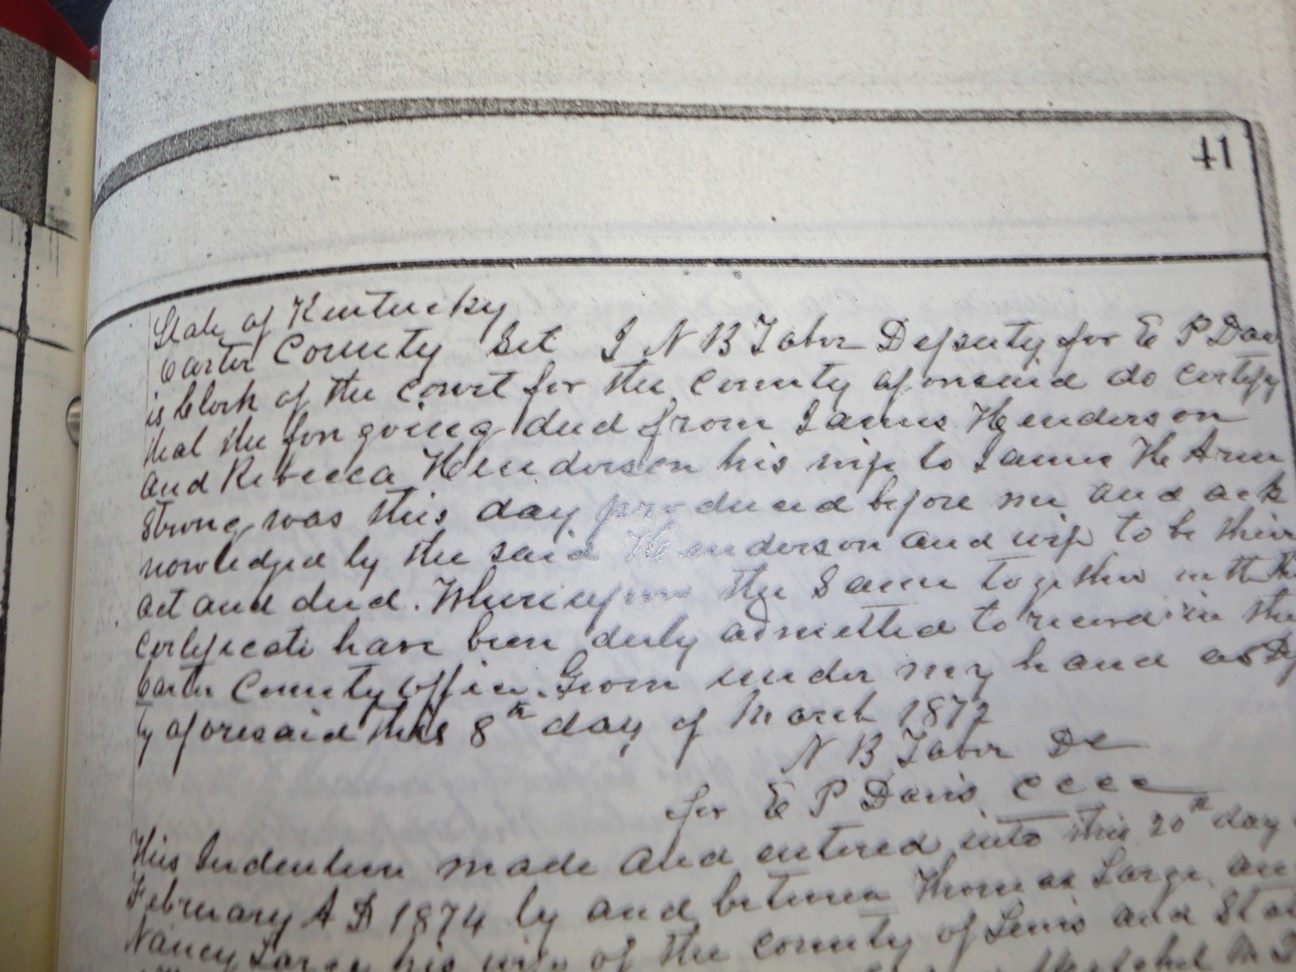 41
State of Kentucky
Carter County Sct I N B Tabor Deputy for E P Dav
is Clerk of the Court for the County aforesaid do certify
that the foregoing deed from James Henderson
and Rebecca Henderson his wife to James H Arm
strong was this day produced before me and ack
nowledged by the said Henderson and wife to be their
act and deed. Whereupon the same together with the
certificate have been duly admitted to record in the
Carter County Office. Given under my hand as Dp
ty aforesaid this 8th day of March 1872
N B Tabor DC
for E P Davis CCCC
This Indenture made and entered into this 20th day
February A D 1874 by and between Thomas Large an
Nancy Large his wife of the County of Lewis and Sta